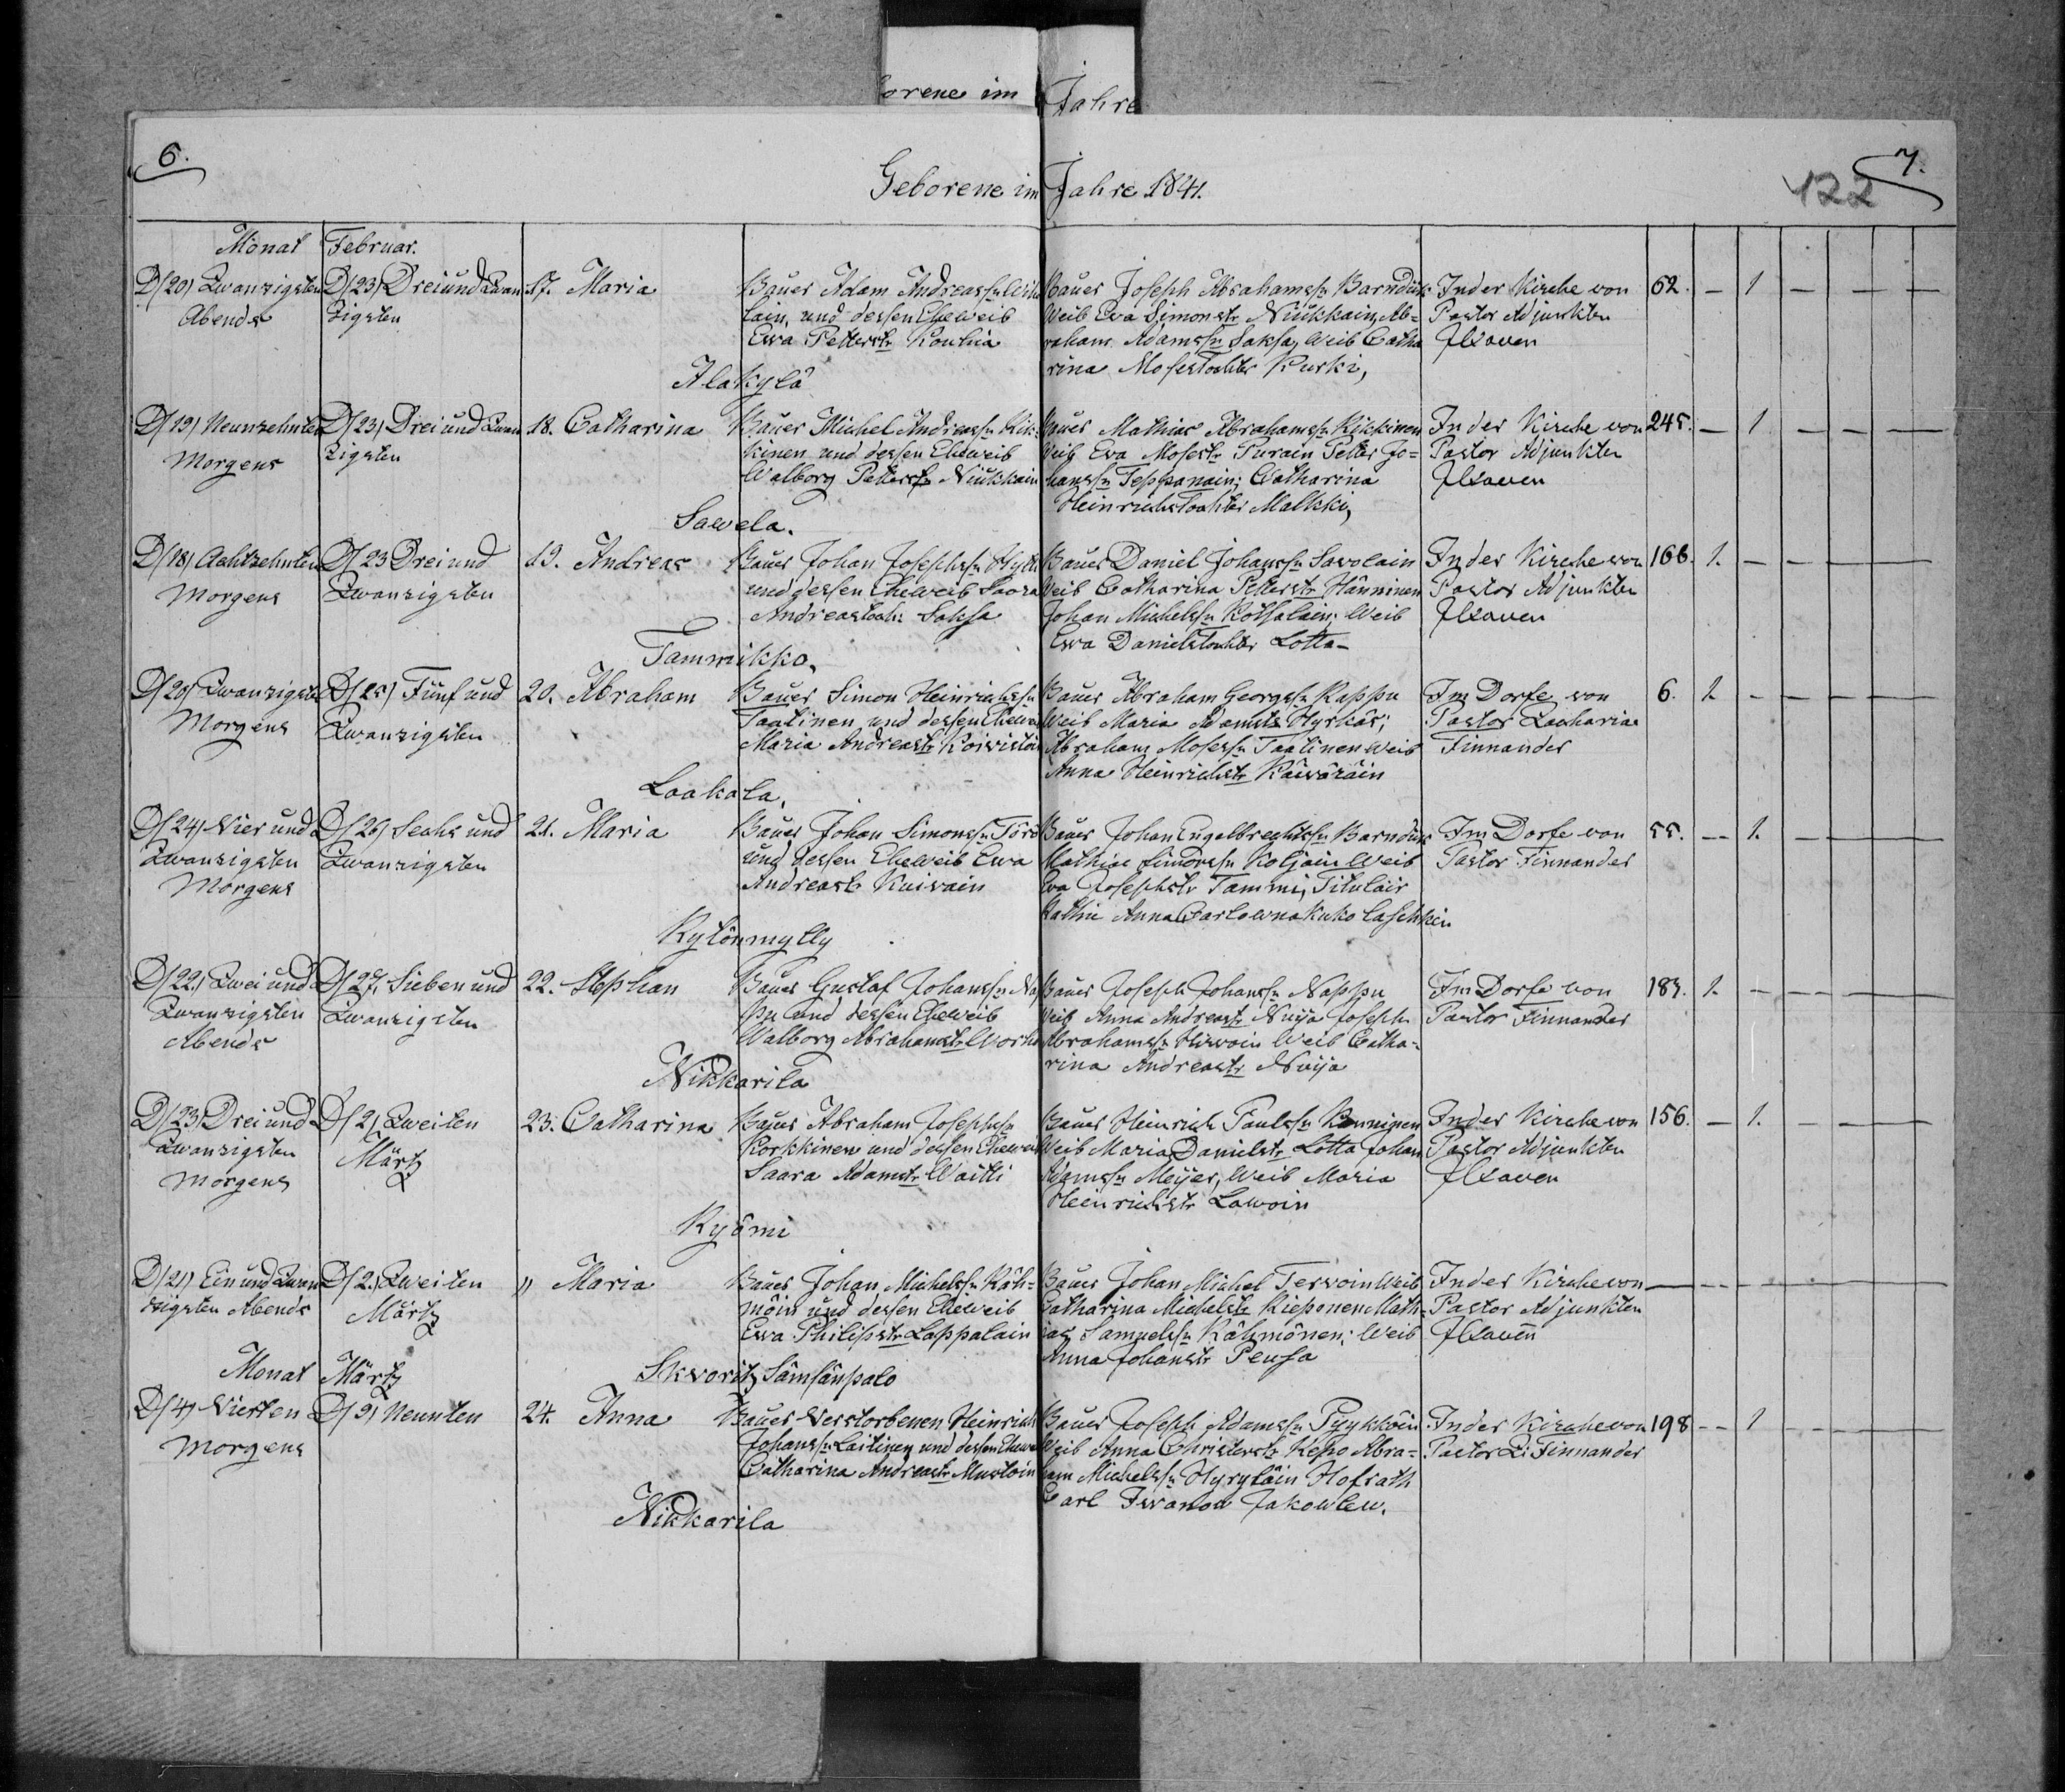 orene im Jahre
6.
7.
122
Geborene im Jahre 1841.
Monat Februar.
D/20) Zwanzigsten
Abends
D/23) Drei und Zwan
zigsten
17. Maria
Bauer Adam Andreassn
lain, und dessen Eheweib
Ewa Petterstr Kouhia
Bauer Joseph Abrahamssn
Weib Eva Simonstr Niukkain, Ab=
raham Adamssn Saksa, Weib Catha
rina Mosestochter Kurki,
In der Kirche von
Pastor Adjunkten
62. — 1 — — — —
Alakylä
D/19) Neunzehnten
Morgens
D/23) Drei und Zwan
zigsten
18. Catharina
Bauer Michel Andreassn Kik-
kinen und dessen Eheweib
Walborg Petterstr Niukkain
Bauer Mathias Abrahamssn Kikkinen
Weib Eva Mosestr Purain Petter Jo=
hanssn Teppanain; Catharina
Heinrichstochter Malkki,
In der Kirche von
Pastor Adjunkten
245. — 1 — — — —
Sawela.
D/18) Achtzehnten
Morgens
D/23 Drei und
Zwanzigsten
19. Andreas
Bauer Johan Josephssn
und dessen Eheweib Saara
Andreastoch: Saksa
Bauer Daniel Johanssn Savolain
Weib Catharina Petterstr Hänninen
Johan Michelssn Weib
Ewa Danielstochter Lotta-
In der Kirche von
Pastor Adjunkten
166. 1. — — — — —
Tammikko.
D/20) Zwanzigsten
Morgens
D/25) Fünf und
Zwanzigsten
20. Abraham
Bauer Simon Heinrichssn
Taatinen und dessen Ehewei
Maria Andreastr Koivistoin
Bauer Abraham Georgssn Rappu
Weib Maria Adamstr Hyrkäs;
Abraham Mosessn Taatinen Weib
Anna Heinrichstr Käiwäräin
Im Dorfe von
Pastor Zacharias
Finnander
6. 1. — — — — —
Laakala,
D/24) Vier und
Zwanzigsten
Morgens
D/26) Sechs und
Zwanzigsten
21. Maria
Bauer Johan Simonssn Törö
und dessen Eheweib Ewa
Andreastr Kuivain
Bauer Johan Engelbrechtssn
Mathias Simonssn Koljain Weib
Eva Josephstr Tammi, Titulair
Räthin Anna Carlowna
Im Dorfe von
Pastor Finnander
55. — 1. — — — —
Kylönmylly
D/22.) Zwei und
Zwanzigsten
Abends
D/27.) Sieben und
Zwanzigsten
22. Stephan
Bauer Gustaf Johanssn Na
pu und dessen Eheweib
Walborg Abrahamstr
Bauer Joseph Johanssn Nappu
Weib Anna Andreastr Nuija Joseph
Abrahamssn Hirvoin Weib Catha-
rina Andreastr Nuija
Im Dorfe von
Pastor Finnander
189. 1. — — — — —
Nikkarila
D/23) Drei und
Zwanzigsten
Morgens
D/2) Zweiten
Märtz
23. Catharina
Bauer Abraham Josephssn
Korkkinen und dessen Ehewei
Saara Adamstr Waitti
Bauer Heinrich Paulssn
Weib Maria Danielstr Lotta Johan
Adamssn Meijer, Weib Maria
Heinrichstr Lawoin
In der Kirche von
Pastor Adjunkten
156. — 1. — — — —
Kyömi
D/21) Ein und Zwan
tzigsten Abends
D/2.) Zweiten
Märtz
" Maria
Bauer Johan Michelssn Käh-
möin und dessen Eheweib
Ewa Philipstr Lappalain
Bauer Johan Michel Tervoin Weib
Catharina Michelstr Kieponen Math-
ias Samuelssn Kähmönen; Weib
Anna Johanstr Peusa
In der Kirche von
Pastor Adjunkten
— — — — — — —
Skvoritz Sämsänpalo
Monat Märtz
D/4) Vierten
Morgens
D/9) Neunten
24. Anna
Bauer Verstorbenen Heinrich
Johanssn Laitinen und dessen Ehewe
Catharina Andreastr Mustoin
Bauer Joseph Adamssn Pyykköin
Weib Anna Christerstr Repo Abra=
ham Michelssn Hyryläin Hofrath
Carl Iwanow Jakowlew.
In der Kirche von
Pastor Z: Finnander
198 — 1 — — — —
Nikkarila